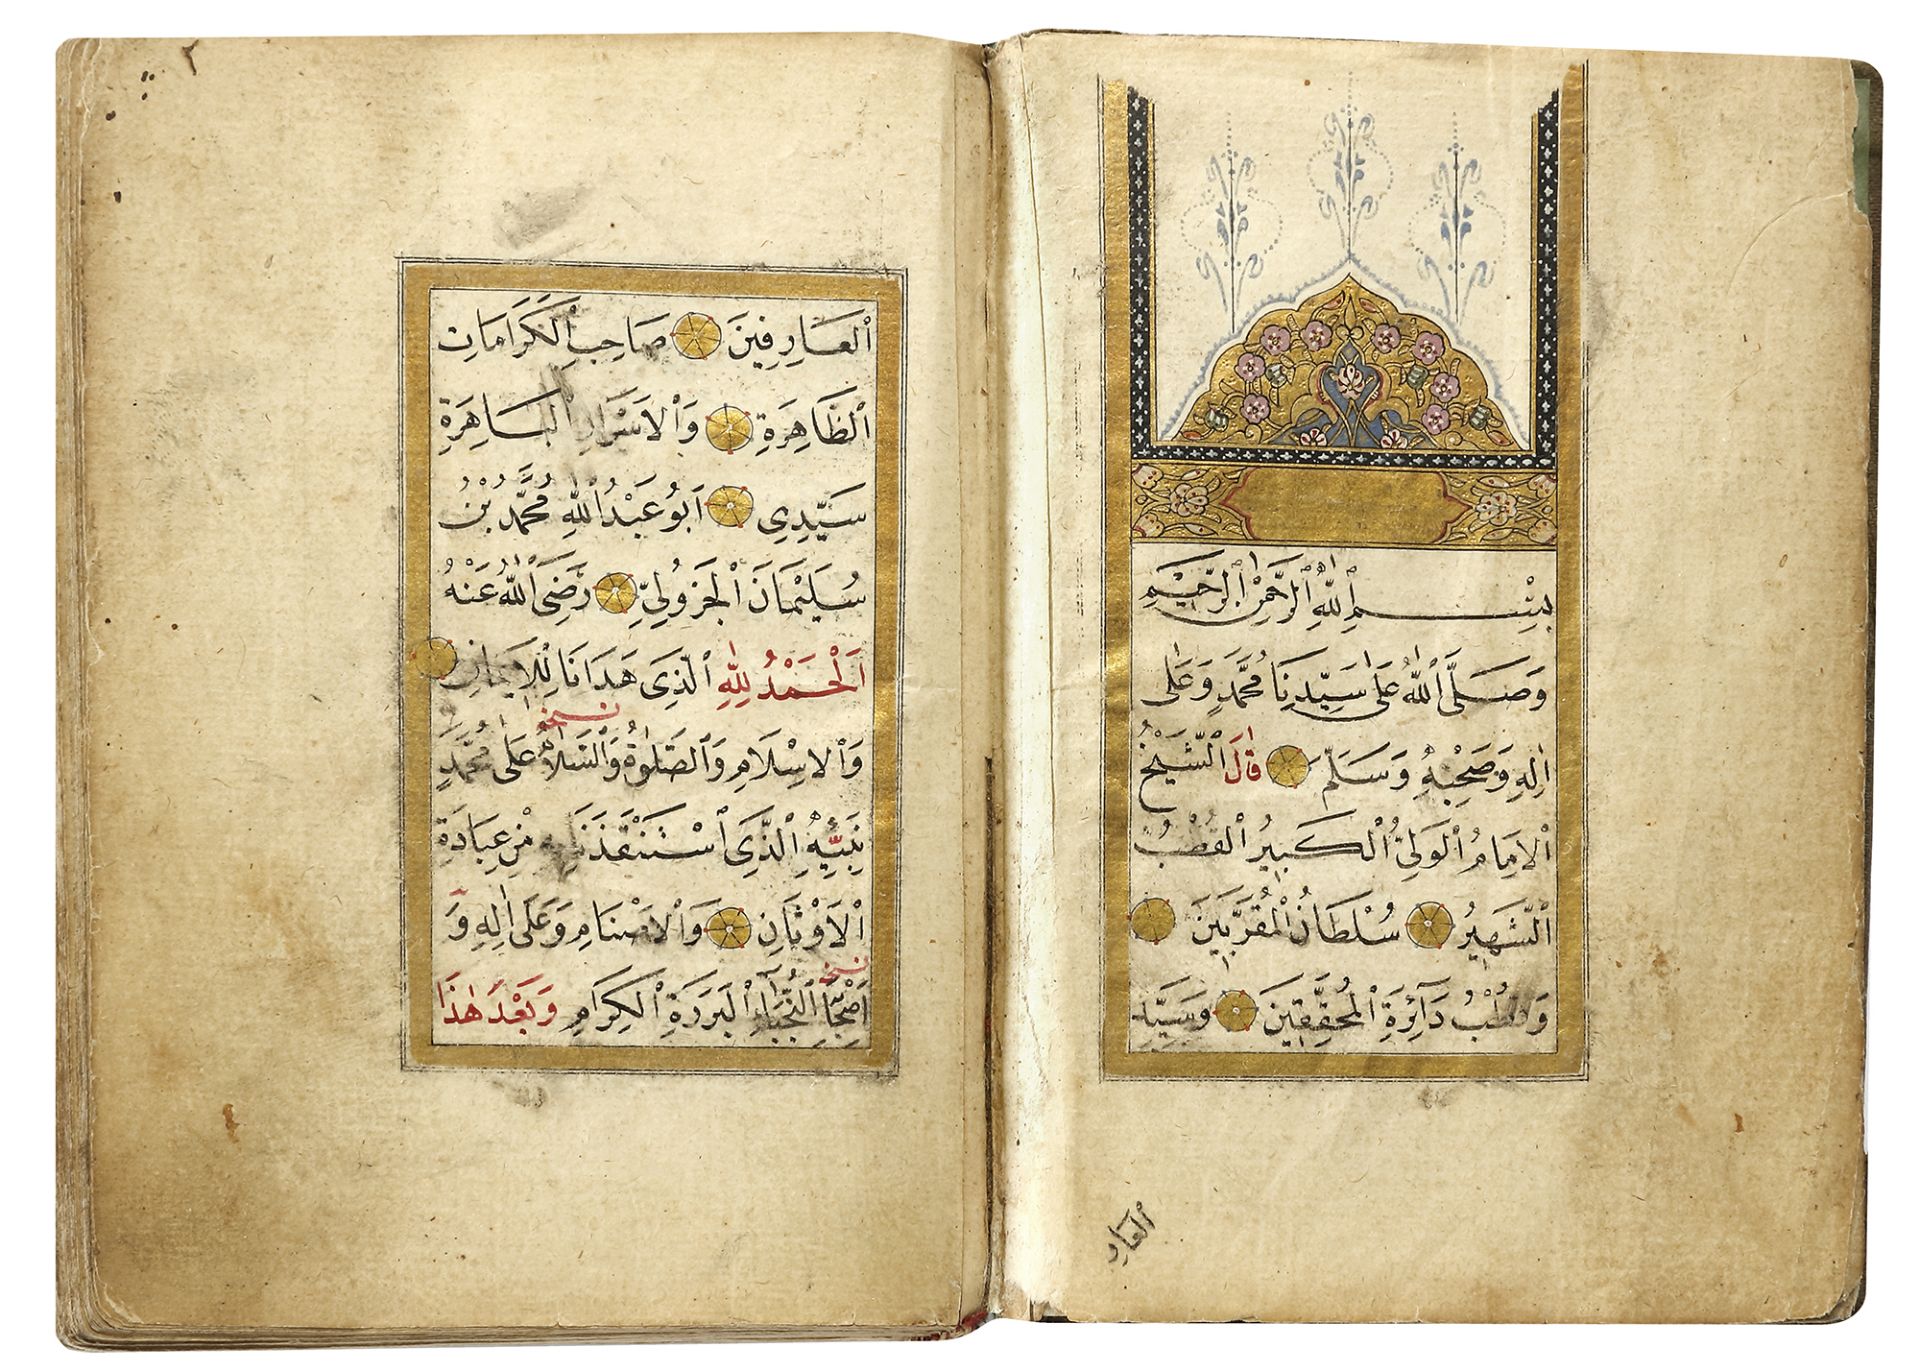 بِسْمِ اللّٰهِ الرَّحْمٰنِ الرَّحِيمِ
وَصَلَّى اللّٰهُ عَلٰى سَيِّدِنَا مُحَمَّدٍ وَعَلٰى
اٰلِهِ وَصَحْبِهِ وَسَلَّمَ قَالَ الشَّيْخُ
الْاِمَامُ الْوَلِيُّ الْكَبِيرُ الْقُطْبُ
الشَّهِيرُ سُلْطَانُ الْمُقَرَّبِينَ
وَقُطْبُ دَآئِرَةِ الْمُحَقِّقِينَ وَسَيِّدِ
العارِ
٢
الْعَارِفِينَ صَاحِبِ الْكَرَامَاتِ
الظَّاهِرَةِ وَالْاَسْرَارِ الْبَاهِرَةِ
سَيِّدِي اَبُو عَبْدُ اللّٰهِ مُحَمَّدُ بْنُ
سُلَيْمَانَ الْجَزُولِيِّ رَضِيَ اللّٰهُ عَنْهُ
اَلْحَمْدُ لِلّٰهِ الَّذِي هَدَانَا لِلْاِيمَانِ
نسخه
وَالْاِسْلَامِ وَالصَّلٰوةُ وَالسَّلَامُ عَلٰى مُحَمَّدٍ
نَبِيِّهِ الَّذِي اسْتَنْقَذَنَا بِهِ مِنْ عِبَادَةِ
الْاَوْثَانِ وَالْاَصْنَامِ وَعَلٰى اٰلِهِ وَ
نسخه
اَصْحَابِهِ النُّجَبَآءِ الْبَرَرَةِ الْكِرَامِ وَبَعْدَ هٰذَا